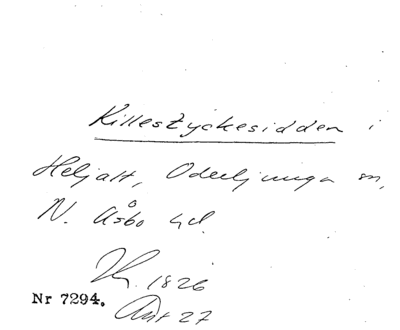 Killestyckesidden i
Heljalt, Oderljunga sn,
N. Åsbo hd.
1826
Nr 7294.
Akt 27